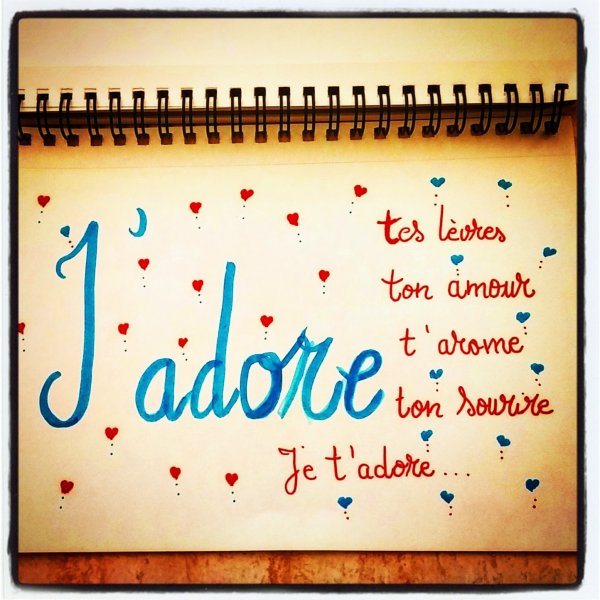 J'adore
tes lèvres
ton amour
t'arome
ton sourire
Je t'adore...